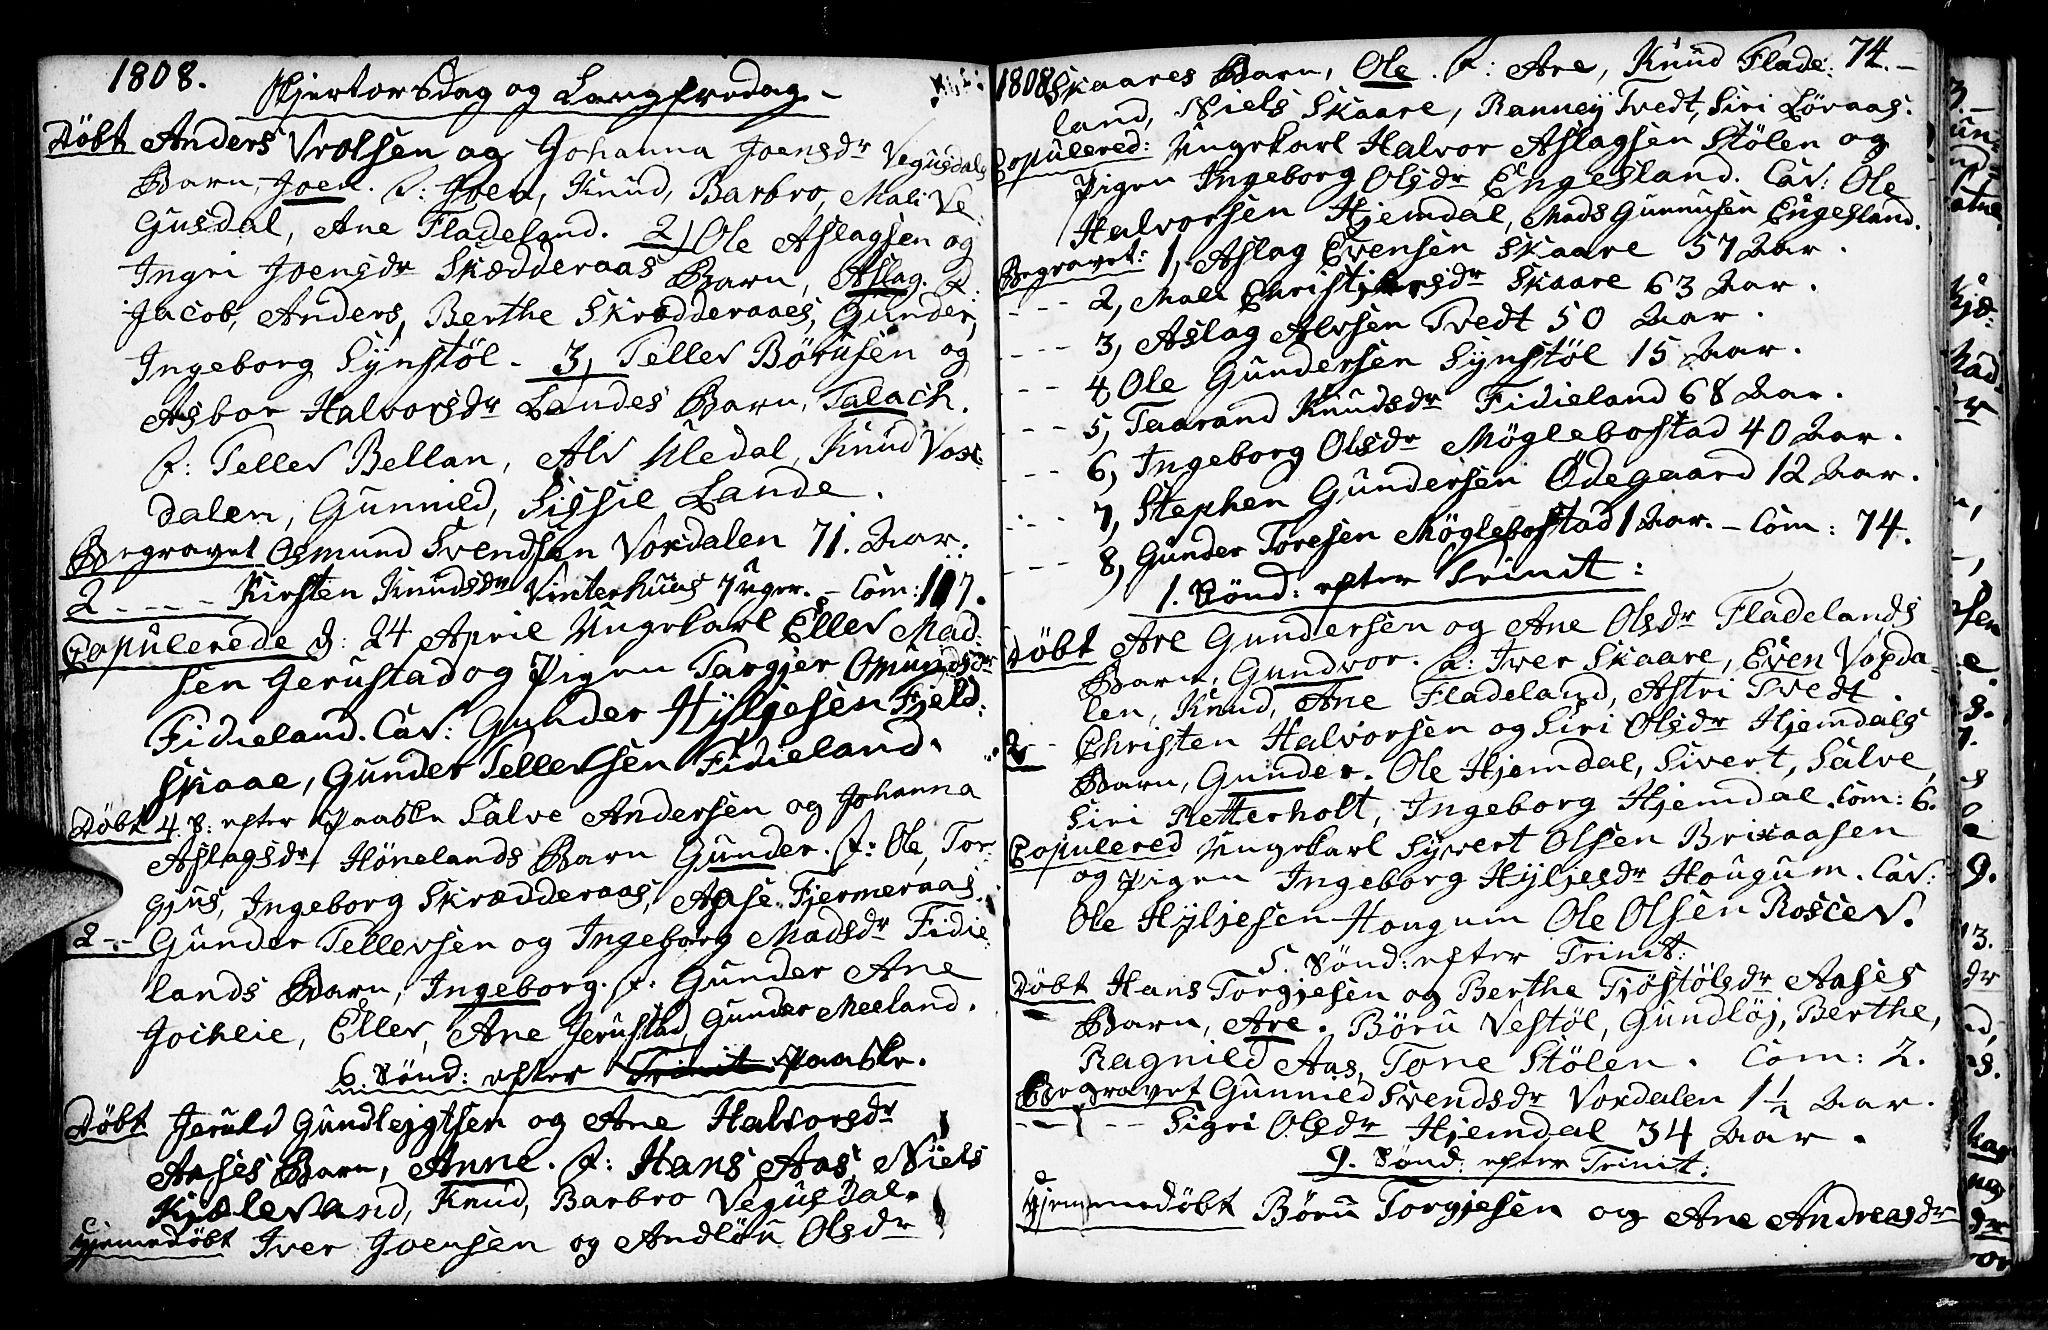 1808.
Skjertorsdag og Langfredag.
Döbt Anders Vrolsen og Johanna Joensdr Vegusdals
Barn, Joen. F: Joen, Knud, Barbro, Mali Ve:
gusdal, Ane Fladeland. 2) Ole Aslagsen og
Ingri Joensdr Skædderaas Barn, Aslag. F:
Jacob, Anders, Berthe Skrædderaaes, Gunder,
Ingeborg Synstöl. 3, Tellev Börusen og
Asbor Halvorsdr Landes Barn, Talach.
F: Tellev Bellan, Alv Uledal, Knud Vox
dalen, Gunnild, Sissie Lande.
Begravet Osmund Svendsen Voxdalen 71. Aar.
2 - - - - Kirsten Knudsdr Vinterhuus 7 Uger. - Com: 107.
Copulerede d: 24 April Ungekarl Ellev Mad:
sen Jerustad og Pigen Targjer Omundsdr
Fidieland. Cav: Gunder Hyljesen Fjeld:
skaae, Gunder Tellevsen Fidieland.
Döbt 4. S: efter Paaske Salve Andersen og Johanna
Aslagsdr Hönelands Barn Gunder. F: Ole, Tor:
gjus, Ingeborg Skrædderaas, Aase Fjermeraas.
2 - - Gunder Tellevsen og Ingeborg Madsdr Fidie:
lands Barn, Ingeborg. F: Gunder Ane
Jocheie, Ellev, Ane Jerustad, Gunder Meeland.
6. Sönd: efter Trinit Paaske.
Döbt Jeruld Gundlejgtsen og Ane Halvorsdr
Aases Barn, Anne. F: Hans Aas, Niels
Kjælevand, Knud, Barbro Vegusdal.
Hjemedöbt Iver Joensen og Andlöu Olsdr
1808 Skaares Barn, Ole. F: Are, Knud Flade: 74.
land, Niels Skaare, Ranney Tvedt, Siri Løvaas.
Copulered: Ungekarl Halvor Aslagsen Stölen og
Pigen Ingeborg Olsdr Engesland. Cav: Ole
Halvorsen Hjemdal, Mads Gunnusen Engesland.
Begravet: 1, Aslag Evensen Skaare 57 Aar.
- - 2, Mali Christensdr Skaare 63 Aar.
- - - 3, Aslag Alvsen Tvedt 50 Aar.
- - 4 Ole Gundersen Synstöl 15 Aar.
- - - 5, Taarand Knudsdr Fidieland 68 Aar.
- - 6, Ingeborg Olsdr Möglebostad 40 Aar.
- - - 7, Stephen Gundersen Ödegaard 12 Aar.
- - - 8, Gunder Toresen Möglebostad 1 Aar. - Com: 74.
1. Sönd: efter Trinit:
Döbt Are Gundersen og Ane Olsdr Fladelands
Barn, Gundvor. F: Iver Skaare, Even Voxda-
len, Knud, Ane Fladeland, Astri Tvedt.
2 - Christen Halvorsen og Siri Olsdr Hjemdals
Barn, Gunder. Ole Hjemdal, Sivert, Salve,
Siri Retterholt, Ingeborg Hjemdal. Com: 6.
Copulered Ungekarl Syvert Olsen Brixaasen
og Pigen Ingeborg Hyljesdr Hougum. Cav:
Ole Hyljesen Hougum Ole Olsen Roscev.
5. Sönd: efter Trinit:
Döbt Hans Torgjesen og Berthe Tjöstölsdr Aases
Barn, Are. Böru Vestöl, Gundløj, Berthe,
Ragnild Aas, Tone Stölen. Com: 2.
Begravet Gunnild Svendsdr Voxdalen 1½ Aar.
- - - - Sigri Olsdr Hjemdal 34 Aar.
9. Sönd: efter Trinit:
Hjemmedöbt Böru Torgjesen og Ane Andreasdr